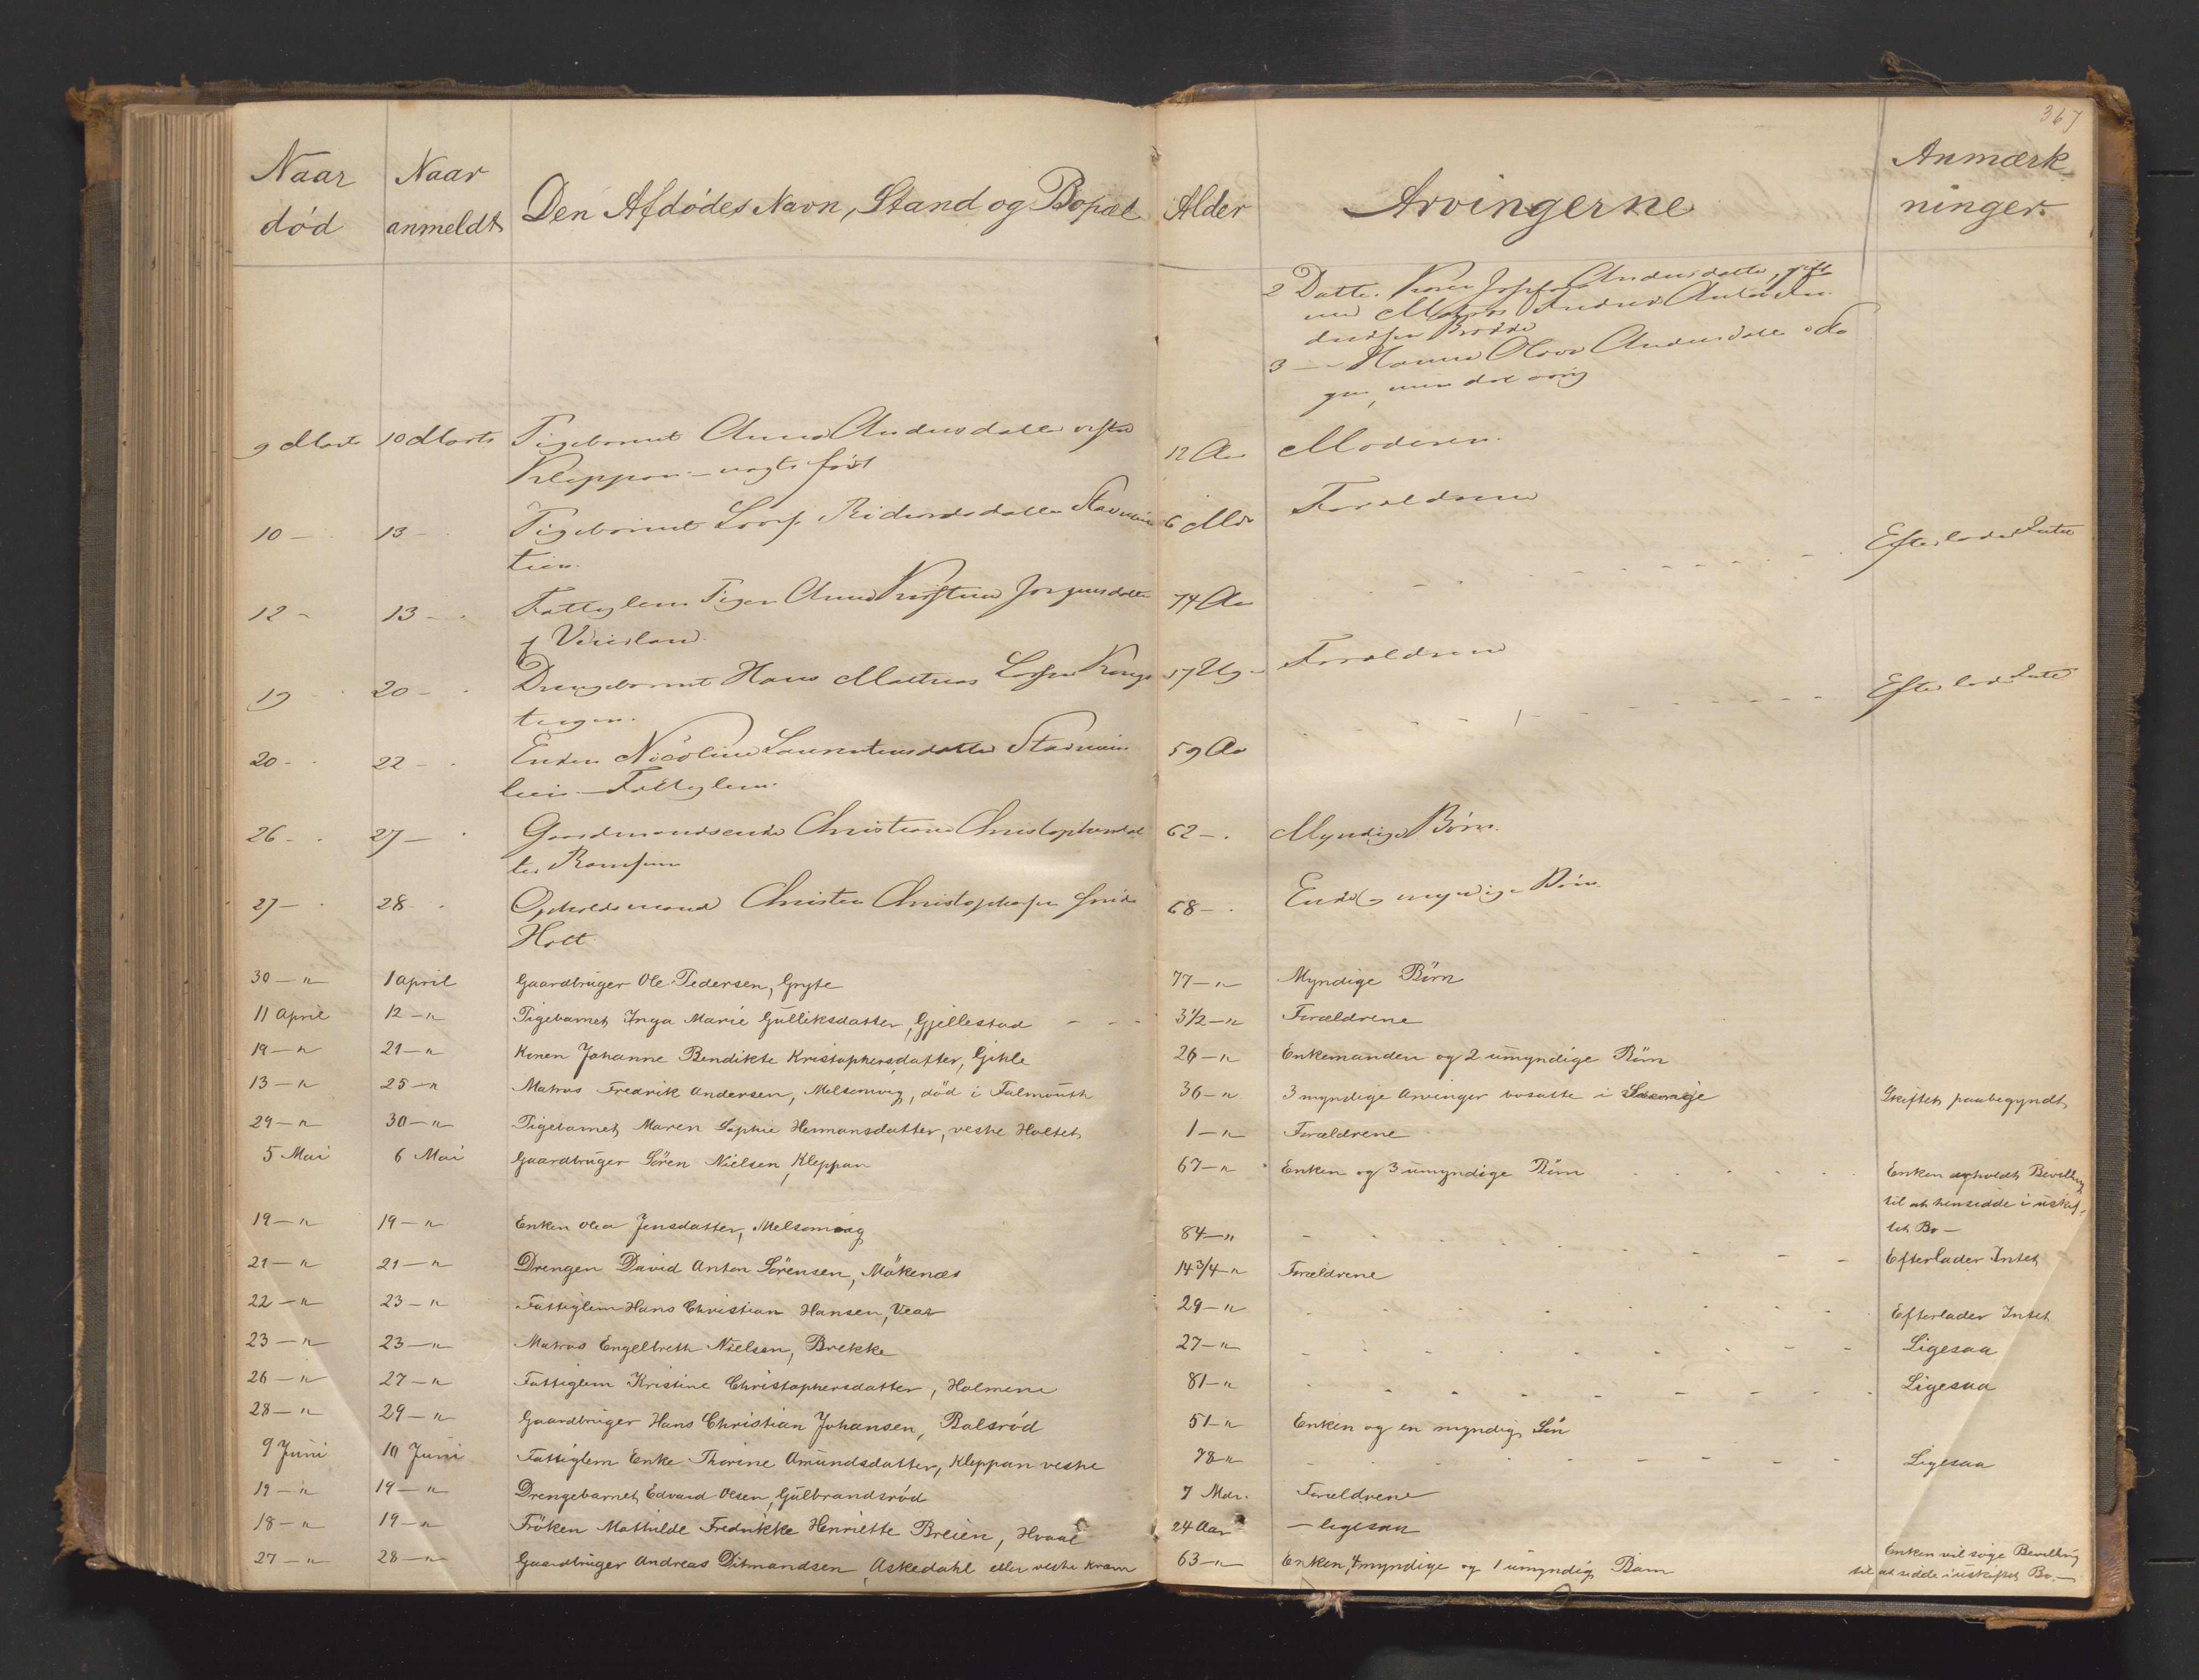 367
Naar død
Naar anmeldt
Den Afdødes Navn, Stand og Bopæl
Alder
Arvingerne
Anmærkninger
2 Datter Andersdatter, gift
med Matros
3 — Hanna Andersdatter
9 Marts 10 Marts Pigebarnet Anna Andersdatter vestre 12 Aar Moderen
Kleppan
10 — 13 — Pigebarnet 6 Mdr Forældrene
12 — 13 — Fattiglem Pigen Anna Kristine Jørgensdatter 74 Aar Efterlader Intet
19 — 20 — Drengebarnet Hans Mathias 17 Ug Forældrene
20 — 22 — Enken Nicoline 59 Aar Efterlader Intet
— Fattiglem
26 — 27 — Gaardmandsenke Christiane Christophersdat 62 — Myndige Børn
ter
27 — 28 — Opholdsmand Christen Christophersen 68 — Enke og myndige Børn
Holt
30 — " 1 April Gaardbruger Ole Pedersen, Gryte 77 — " Myndige Börn
11 April 12 — " Pigebarnet Inga Marie Gulliksdatter, Gjellestad 3 1/2 — " Forældrene
19 — " 21 — " Konen Johanne Bendikte Kristophersdatter, Gihle 26 — " Enkemanden og 2 umyndige Börn
13 — " 25 — " Matros Fredrik Andersen, Melsomvig, död i Falmouth 36 — " 3 myndige Arvinger bosatte i Skiftet paabegyndt
29 — " 30 — " Pigebarnet Maren Sophie Hermansdatter, vestre Holtet 1 — " Forældrene
5 Mai 6 Mai Gaardbruger Sören Nielsen, Kleppan 67 — " Enken og 3 umyndige Börn Enken Bevilling
til at hensidde i uskif-
tet Bo —
19 — " 19 — " Enken Olea Jensdatter, Melsomvig 84 — " Efterlader Intet
21 — " 21 — " Drengen David Anton Sörensen, Mökenæs 14 3/4 — " Forældrene
22 — " 23 — " Fattiglem Hans Christian Hansen, Vear 29 — " Efterlader Intet
23 — " 23 — " Matros Engelbreth Nielsen, Brekke 27 — " Ligesaa
26 — " 27 — " Fattiglem Kristine Christophersdatter, Holmene 81 — " Ligesaa
28 — " 29 — " Gaardbruger Hans Christian Johansen, Balsröd 51 — " Enken og en myndig Sön
9 Juni 10 Juni Fattiglem Enke Thorine Amundsdatter, Kleppan vestre 78 " Ligesaa
19 — " 19 — " Drengebarnet Edvard Olsen, Gulbrandsröd 7 Mdr. Forældrene
18 — " 19 — " Fröken Mathilde Fredrikke Henriette Breien, Hvaal 24 Aar — ligesaa
27 — " 28 — " Gaardbruger Andreas Ditmandsen, Askedahl eller vestre Kram 63 — " Enken, 4 myndige og 1 umyndig Barn Enken vil söge Bevilling
til at sidde i uskiftet Bo. —